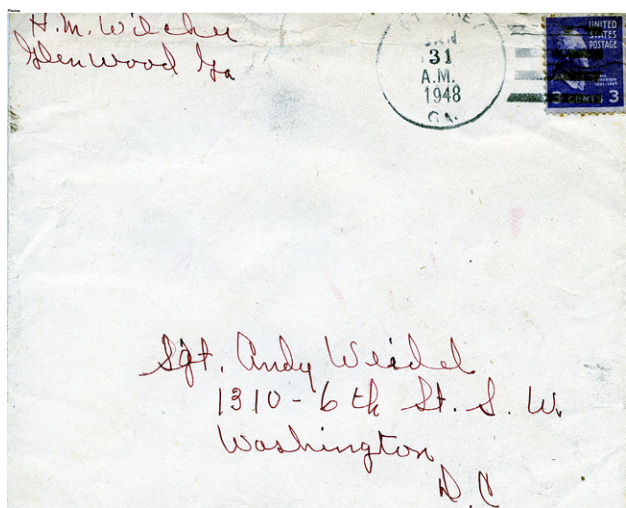 H. M. Wilcher
Glenwood Ga
JAN
31
A.M.
1948
GA.
UNITED
STATES
POSTAGE
3 CENTS 3
Sgt. Andy Weidel
1310 - 6th St. S. W.
Washington
D. C